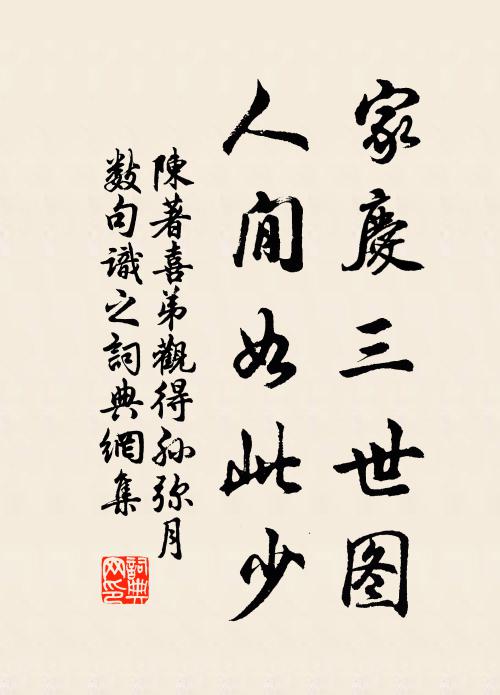 家慶三世图
人間如此少
陳著喜弟觀得孙弥月
数句識之詞典網集
詞典网印